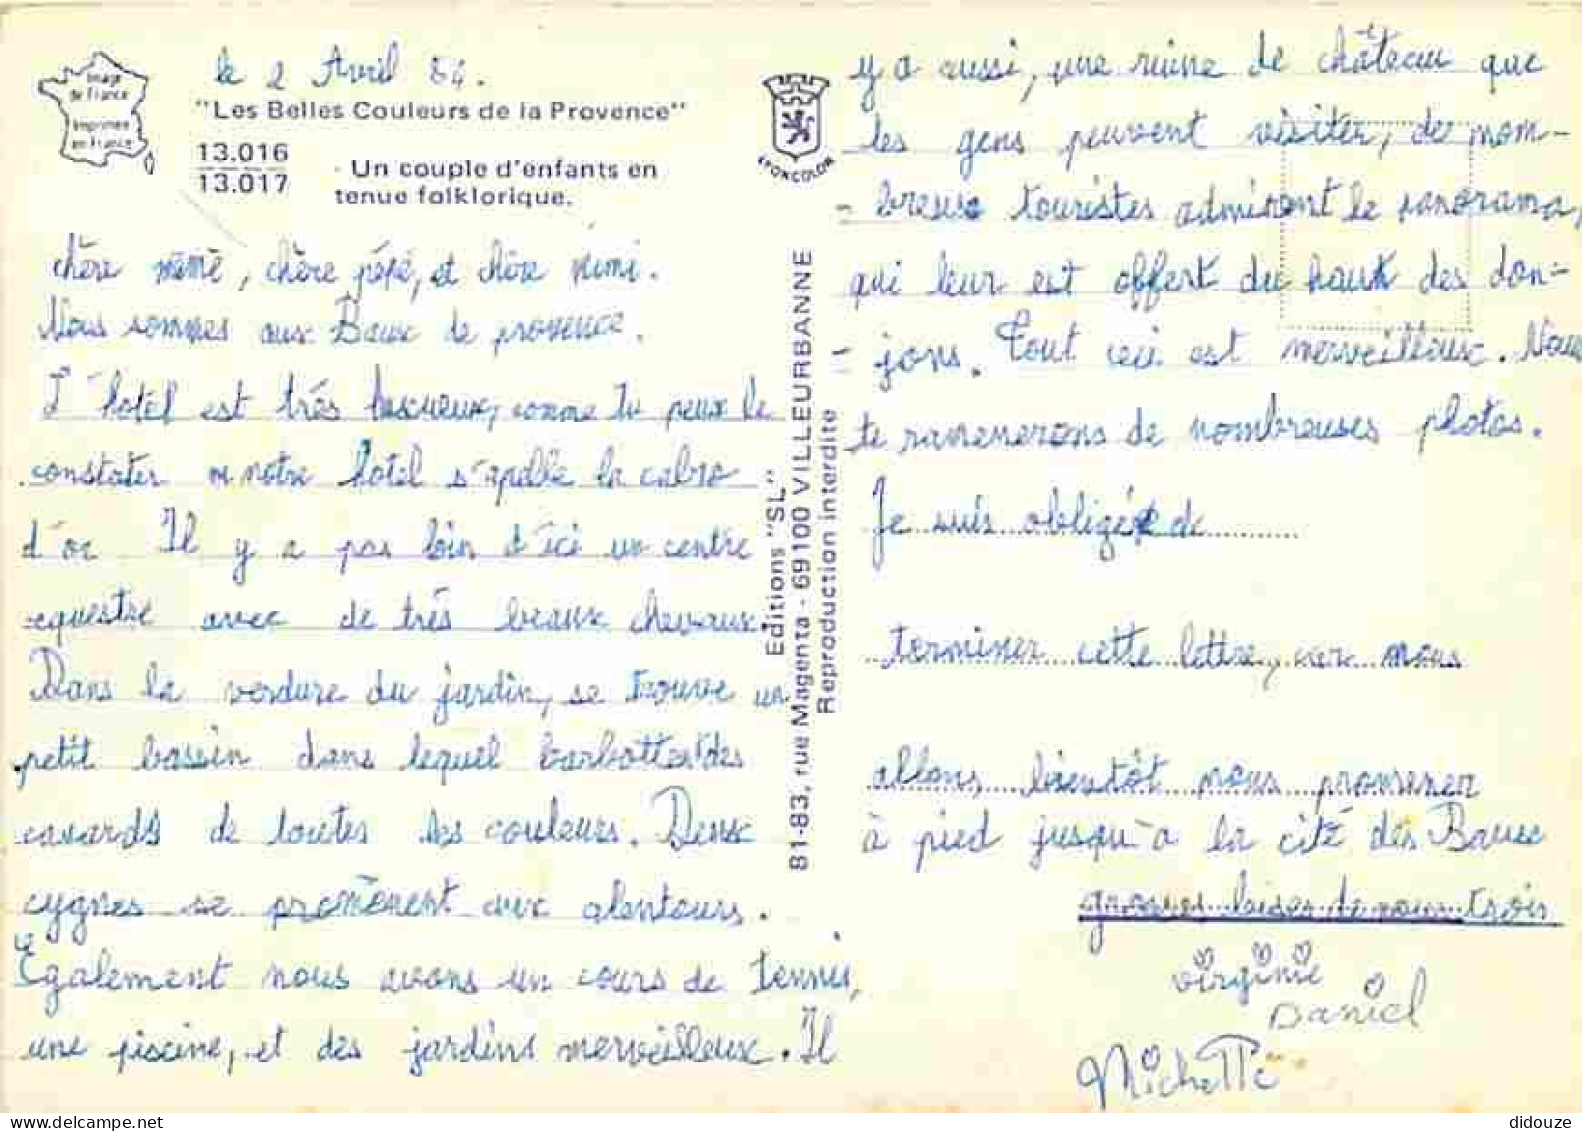 Image
de France
Imprimée
en France
le 2 Avril 84.
"Les Belles Couleurs de la Provence"
13.016
13.017
- Un couple d'enfants en
tenue folklorique.
LYONCOLOR
chère mémé, chère pépé, et chère Mimi.
Nous sommes aux Baux de provence.
L'hotel est trés luxueux, comme tu peux le
constater notre hotel s'apelle la cabro
d'or Il y a pas loin d'ici un centre
equestre avec de trés beaux chevaux.
Dans la verdure du jardin, se trouve un
petit bassin dans lequel barbottent des
canards de toutes les couleurs. Deux
cygnes se promènent aux alentours.
Egalement nous avons un cours de tennis,
une piscine, et des jardins merveilleux. Il
Editions "SL"
81-83, rue Magenta - 69100 VILLEURBANNE
Reproduction interdite
y a aussi, une ruine de château que
les gens peuvent visiter, de nom-
-breux touristes admiront le panorama,
qui leur est offert du haut des don-
-jons. Tout ceci est merveilleux. Nous
te ramenerons de nombreuses photos.
Je suis obligée de
terminer cette lettre, car nous
allons bientôt nous promener
à pied jusqu'a la cité des Baux
grosses bises de nous trois
virginie
Daniel
Michette
didouze